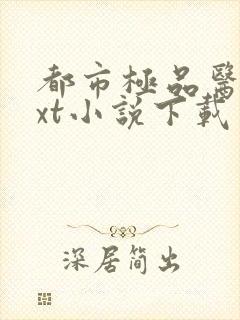 都市極品醫
xt小說下載
深居簡出